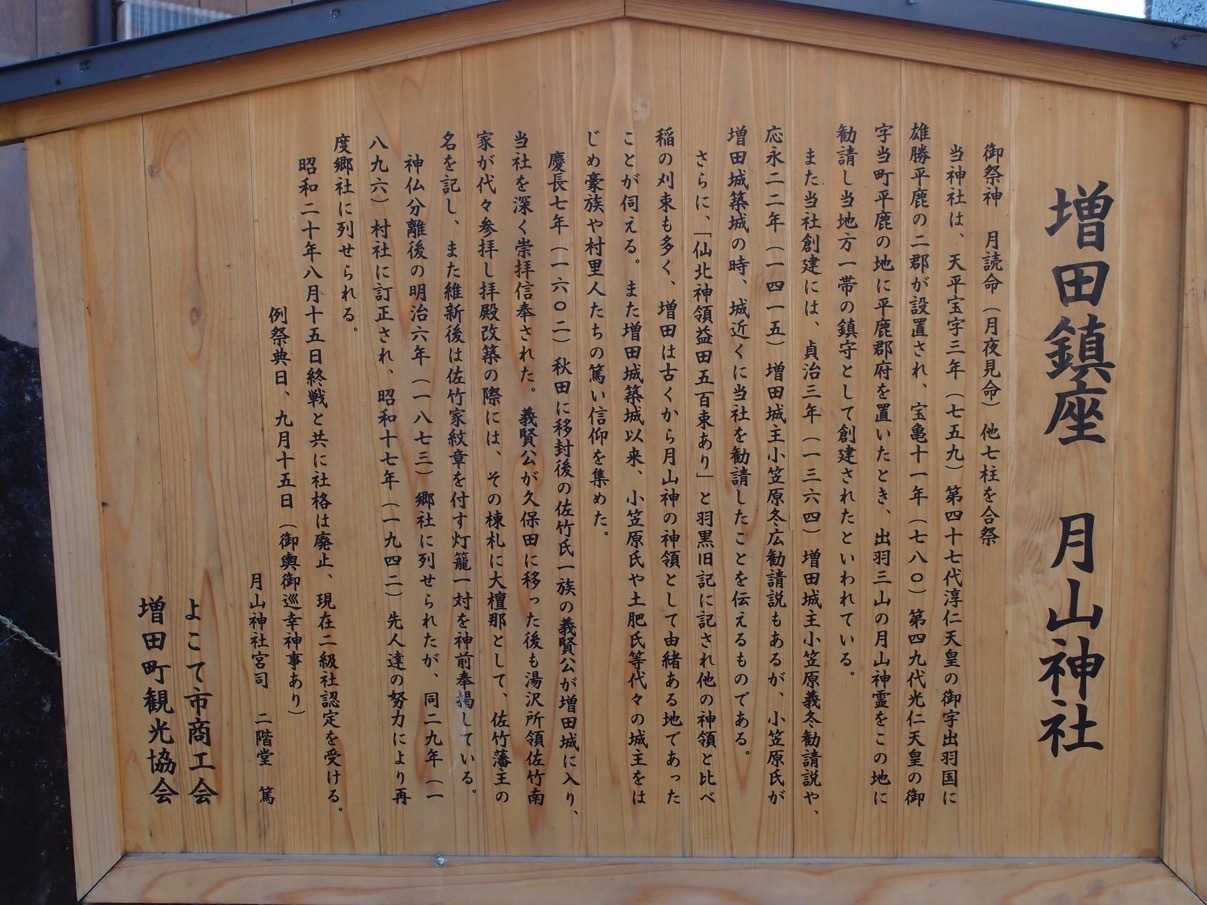 増田鎮座　月山神社
御祭神　月読命（月夜見命）他七柱を合祭
当神社は、天平宝字三年（七五九）第四十七代淳仁天皇の御宇出羽国に
雄勝平鹿の二郡が設置され、宝亀十一年（七八〇）第四九代光仁天皇の御
宇当町平鹿の地に平鹿郡府を置いたとき、出羽三山の月山神霊をこの地に
勧請し当地方一帯の鎮守として創建されたといわれている。
また当社創建には、貞治三年（一三六四）増田城主小笠原義冬勧請説や、
応永二二年（一四一五）増田城主小笠原冬広勧請説もあるが、小笠原氏が
増田城築城の時、城近くに当社を勧請したことを伝えるものである。
さらに、「仙北神領益田五百束あり」と羽黒旧記に記され他の神領と比べ
稲の刈束も多く、増田は古くから月山神の神領として由緒ある地であった
ことが伺える。また増田城築城以来、小笠原氏や土肥氏等代々の城主をは
じめ豪族や村里人たちの篤い信仰を集めた。
慶長七年（一六〇二）秋田に移封後の佐竹氏一族の義賢公が増田城に入り、
当社を深く崇拝信奉された。義賢公が久保田に移った後も湯沢所領佐竹南
家が代々参拝し拝殿改築の際には、その棟札に大檀那として、佐竹藩主の
名を記し、また維新後は佐竹家紋章を付す灯籠一対を神前奉掲している。
神仏分離後の明治六年（一八七三）郷社に列せられたが、同二九年（一
八九六）村社に訂正され、昭和十七年（一九四二）先人達の努力により再
度郷社に列せられる。
昭和二十年八月十五日終戦と共に社格は廃止、現在二級社認定を受ける。
例祭典日、九月十五日（御輿御巡幸神事あり）
月山神社宮司　二階堂　篤
よこて市商工会
増田町観光協会